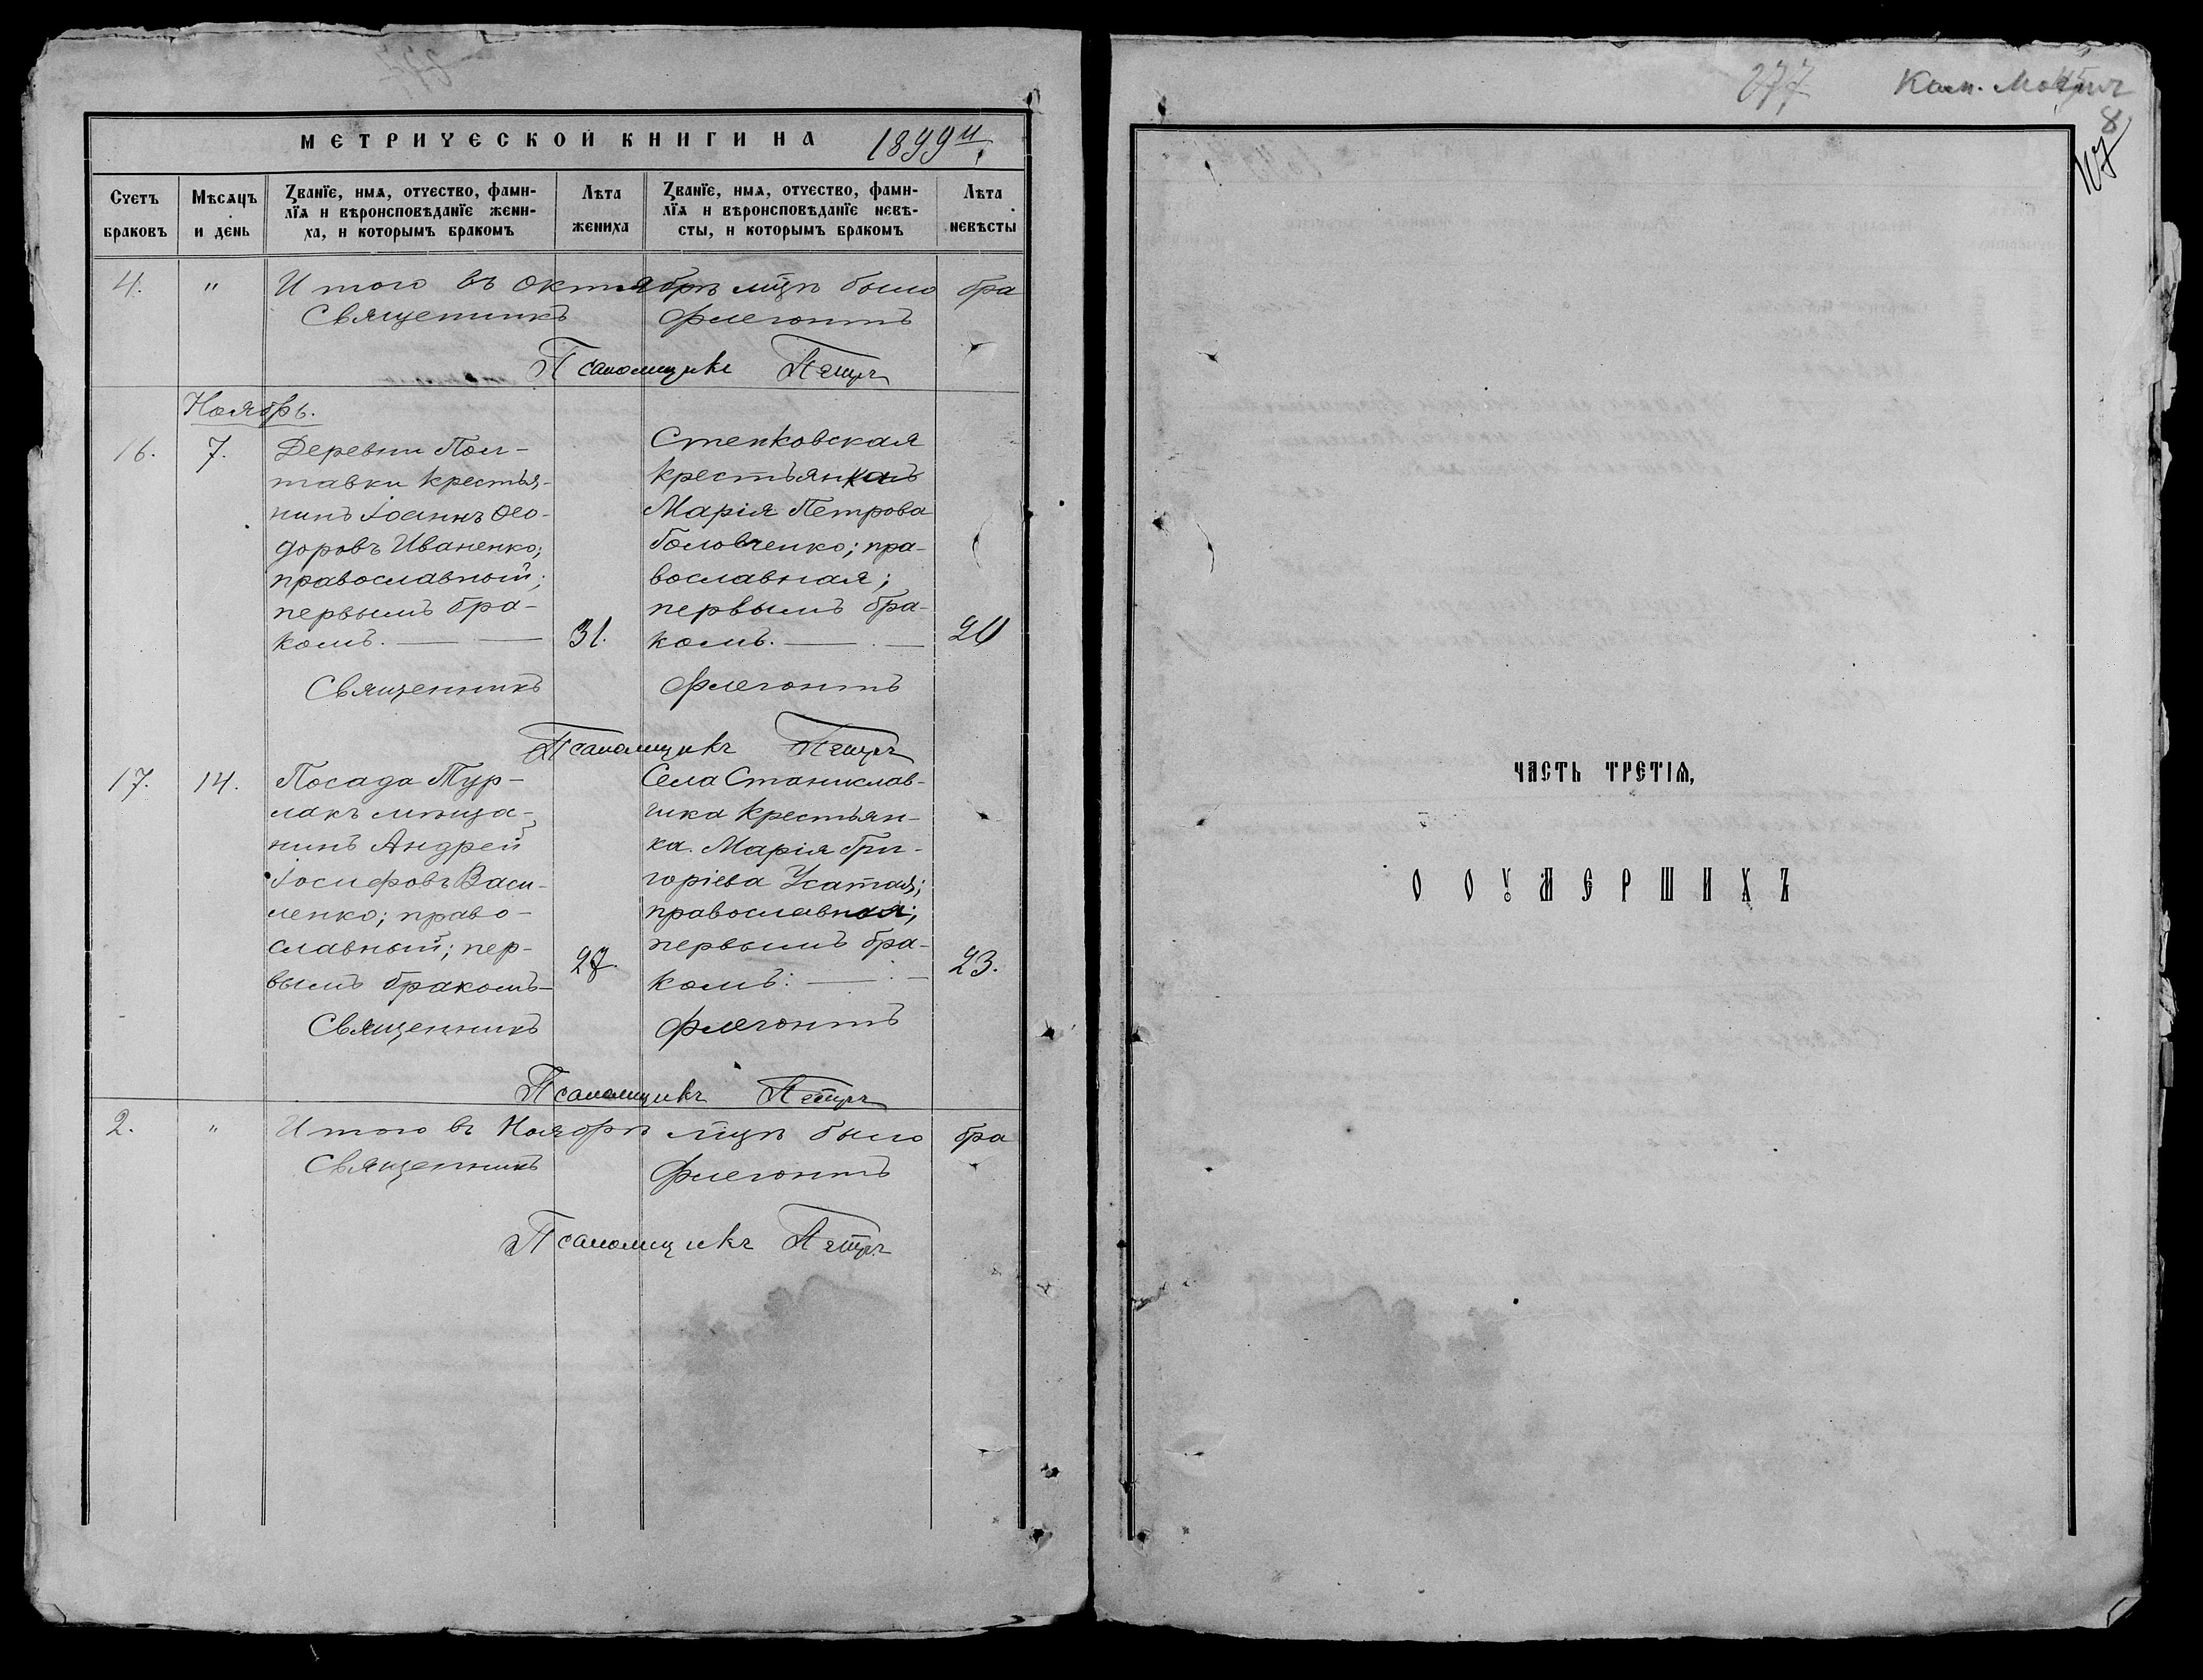 МЕТРИЧЕСКОЙ КНИГИ НА 1899й
Счетъ браковъ
Мѣсяцъ и день
Званїе, имѧ, отчество, фами-
лїѧ и вѣроисповѣданїе жени-
ха, и которымъ бракомъ
Лѣта жениха
Званїе, имѧ, отчество, фами-
лїѧ и вѣроисповѣданїе невѣ-
сты, и которымъ бракомъ
Лѣта невѣсты
4. " Итого въ октябрѣ мцѣ было бра
Священникъ Флегонтъ
Псаломщикъ Петръ
Ноябрь.
16. 7.
Деревни Пол-
тавки крестья-
нинъ Іоаннъ Ѳео-
доровъ Иваненко;
православный;
первымъ бра-
комъ. 31.
Степковская
крестьянка
Марія Петрова
Головченко; пра-
вославная;
первымъ бра-
комъ. 20
Священникъ Флегонтъ
Псаломщикъ Петръ
17. 14.
Посада Тур-
лакъ мѣща-
нинъ Андрей
Іосифовъ Васи-
ленко; право-
славный; пер-
вымъ бракомъ 27.
Села Станислав-
чика крестьян-
ка Марія Гри-
горіева Усатая;
православная;
первымъ бра-
комъ: 23.
Священникъ Флегонтъ
Псаломщикъ Петръ
2. " Итого въ Ноябрѣ мцѣ было бра
Священникъ Флегонтъ
Псаломщикъ Петръ
277
8
117
ЧАСТЬ ТРЕТІѦ,
О ОУМЕРШИХЪ